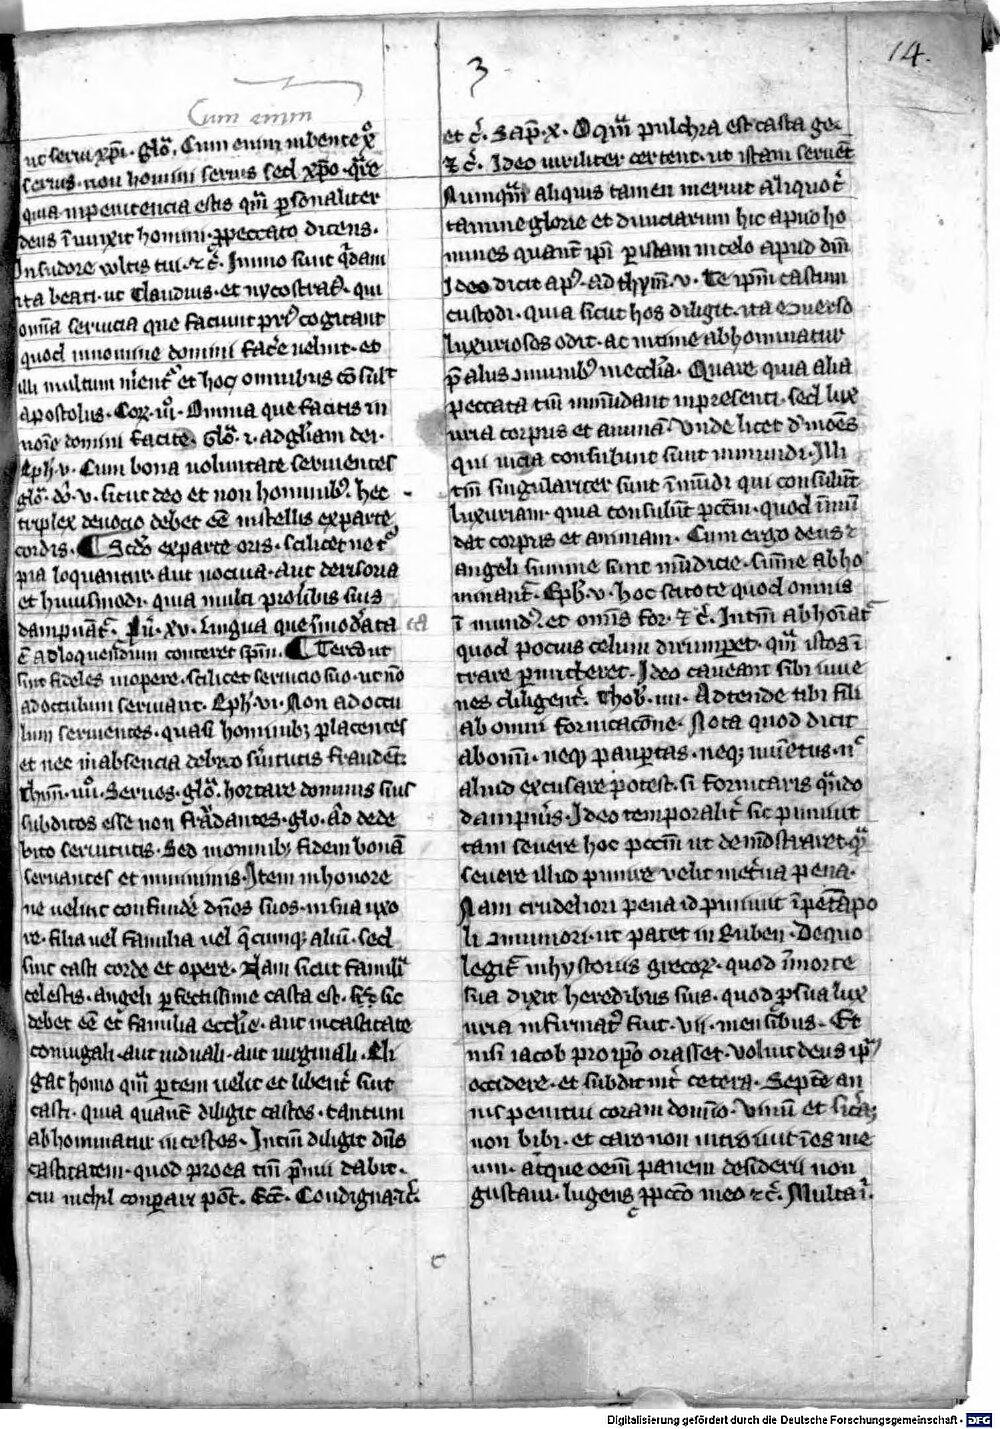 3
14.
Cum enim
ut serui xp̄i. glō. Cum enim iubente xo̅
seruis. non homini seruis sed xp̄o. qr̄e
quia in penitencia estis qm̄ personaliter
deus īiunxit homini. ꝓ peccato dicens.
In sudore uultus tui. ⁊c̄. Immo sunt qͥdam
ita beati. ut Claudius. et nycostratꝰ. qui
omīa seruicia que faciunt priꝰ cogitant
quod in nomine domini facē uelint. et
illi multum mērentᷣ et hoc omnibus cōsulᷣt
apostolus. Coꝝ. Omnia que facitis in
noīe domini facite. Glō. i. ad gl̄iam dei.
Eph. v. Cum bona uoluntate seruientes
glō. dō. v. sicut deo et non hominibꝰ. hec
triplex deuocio debet eē in stellis ex parte
cordis. ¶ Scd̄o ex parte oris. scilicet ne tᷣ
pia loquantur. aut nociua. aut derisoria
et huiusmodi. quia multi pro sibi suis
dampnātᷣ. xv. Lingua que īmoderata
ē ad loquendum conteret spm̄. ¶ Tercō ut
sint fideles in opere. scilicet seruicio suo. ut nō
ad occulum seruiant. Eph. vi. Non ad occu
lum seruientes. quasi hominibꝫ placentes
et nec in absencia debito seruitutis fraudentᷣ
Seruos. glō. hortare dominis suis
subditos esse non frādantes. glo. de de
bito seruitutis. Sed in omnibꝫ fidem bonā
seruantes et in minimis. Item in honore
ne uelint confundē dn̄os suos. in sua uxo
re. filia uel familia uel qͣcumqꝫ aliū. sed
sint casti corde et opere. Nam sicut familiᷓ
celestis. angeli perfectissime casta est. sic
debet eē et familia eccl̄ie. aut in castitate
coniugali. aut uiduali. aut uirginali. Eli
gat homo qm̄ partem uelit et libentᷣ sint
casti. quia quantᷣ diligit castos. tantum
abhominatur incestos. Intm̄ diligit dn̄s
castitatem. quod pro ea tm̄ p̄mii dabit.
cui nichil conparari pōt. Eccᷣ. Condigna ⁊c̄.
et c̄. Sap̄. x. O qm̄ pulchra est casta ge.
⁊c̄. Ideo uiriliter certent. ut istam seruēt
Numqm̄ aliquis tamen meruit aliquotᷣ
tamine glorie et diuiciarum hic apud ho
mines quantᷣ ip̄i per istam in celo apud dm̄
Ideo dicit apꝰ. ad thym̄. v. Te ip̄m castum
custodi. quia sicut hos diligit. ita e conuerso
luxuriosos odit. ac intime abhominatur
p̄ aliis omnibꝰ in eccl̄ia. Quare quia alia
peccata tm̄ inmūdant in presenti. sed lux
uria corpus et animā. Vnde licet oēs
qui uicia consulunt sunt inmundi. Illi
tm̄ singulariter sunt īmūdi qui consulūt
luxuriam. quia consulūt pctm̄. quod īmū
dat corpus et animam. Cum ergo deus ⁊
angeli summe sint mūdicie. sūme abho
minantᷣ. Eph. v. hoc scitote quod omnis
īmundꝰ. et omīs for. ⁊c̄. Intm̄ abhoīatᷣ
quod pocius celum dirumpet. qm̄ istos ī
trare permitteret. Ideo caueant sibi iuue
nes diligentᷣ. Thob. iiii. Adtende tibi fili
ab omni fornicacōne. Nota quod dicit
ab om̄i. neqꝫ paupertas. neqꝫ iuuētus. nͨ
aliud excusare potest. si fornicaris qͣndo
dampniꝰ. Ideo temporalitᷣ sic puniuit
tam seuere hoc pctm̄ ut demōstraret. qͣ
seuere illud punire uelit in et̄na pena.
Nam crudeliori pena id puniuit ī pentapo
li ut patet in Ruben. De quo
legitᷣ in hystoriis grecoꝝ. quod ī morte
sua dixit heredibus suis. quod per sua lux
uria infirmatᷣ fuit. vii. mensibus. Et
nisi iacob pro ip̄o orasset. uoluit deus ip̄m
occidere. et subdit intᷣ cetera. Septē an
nis penitui coram domīo. Vinū et sicerā
non bibi. et caro non introiuit ī os me
um. atque oēm panem desiderii non
gustaui. lugens ꝓ pctō meo ⁊c̄. Multa ī.
Digitalisierung gefördert durch die Deutsche Forschungsgemeinschaft - DFG